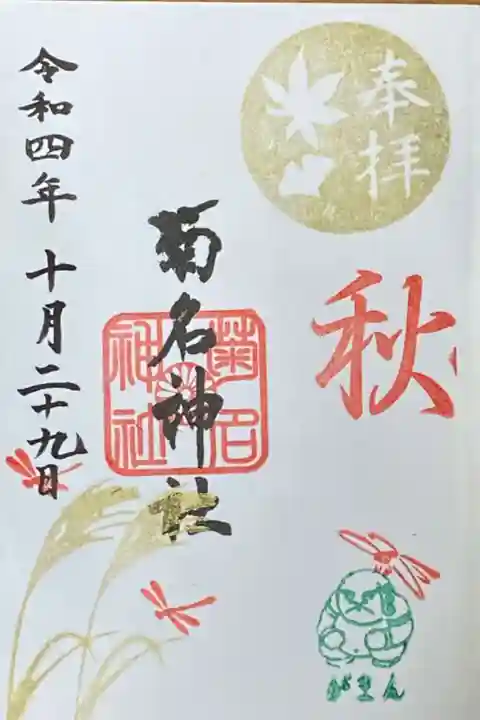 奉拝
秋
菊名神社
菊名
神社
令和四年 十月二十九日
がまん